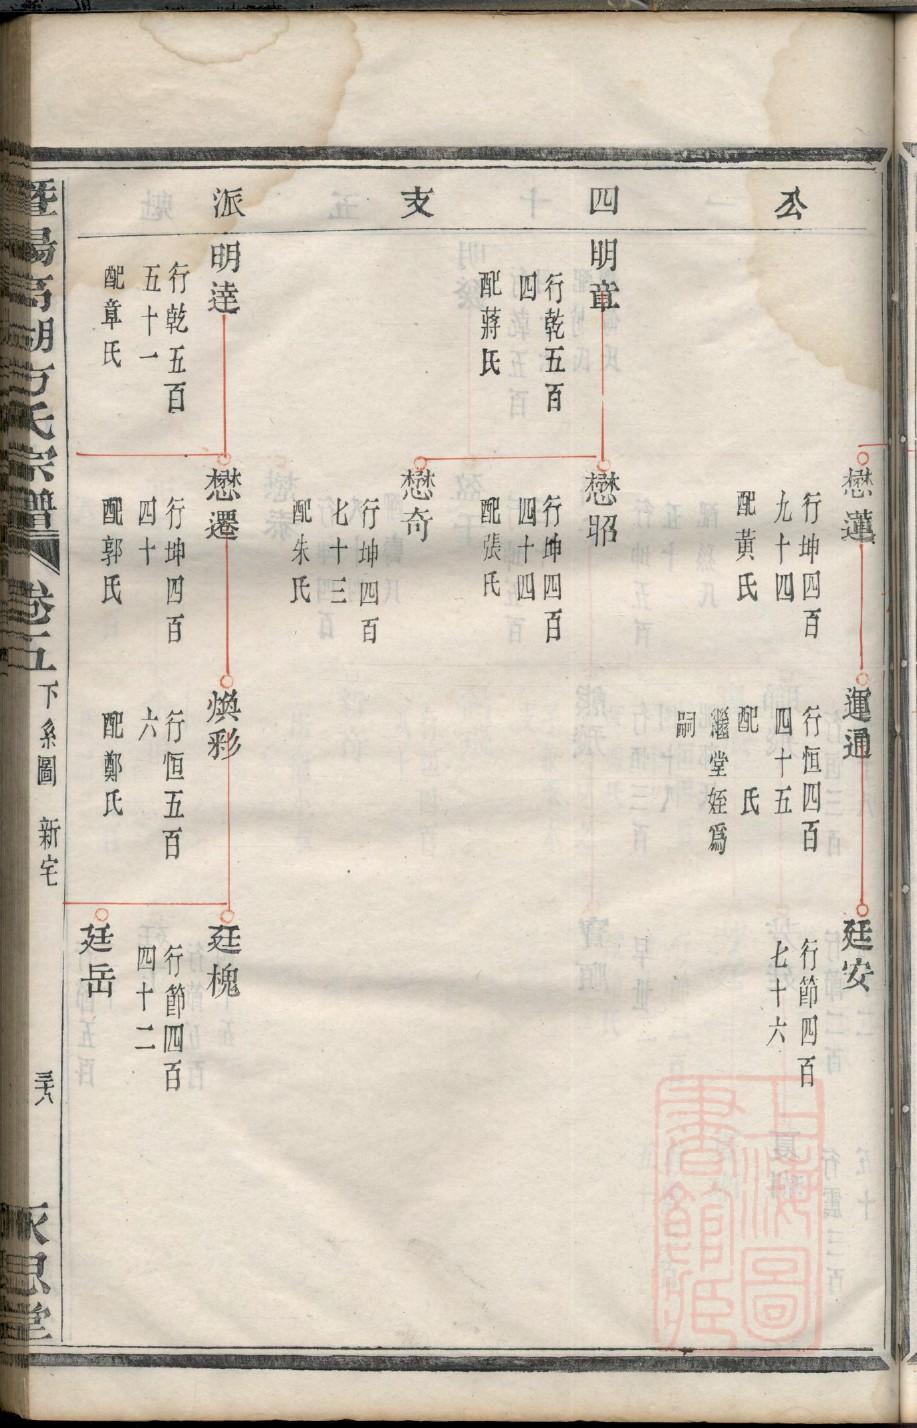 公四支派
懋蓮
行坤四百
九十四
配黃氏
運通
行恒四百
四十五
配 氏
繼堂姪爲
嗣
廷安
行節四百
七十六
明章
行乾五百
四
配蔣氏
懋昭
行坤四百
四十四
配張氏
懋奇
行坤四百
七十三
配朱氏
明逹
行乾五百
五十一
配章氏
懋遷
行坤四百
四十
配郭氏
煥彩
行恒五百
六
配鄭氏
廷槐
行節四百
四十二
廷岳
暨陽高湖方氏宗譜
卷五
下系圖
新宅
永思堂
上海圖書館藏